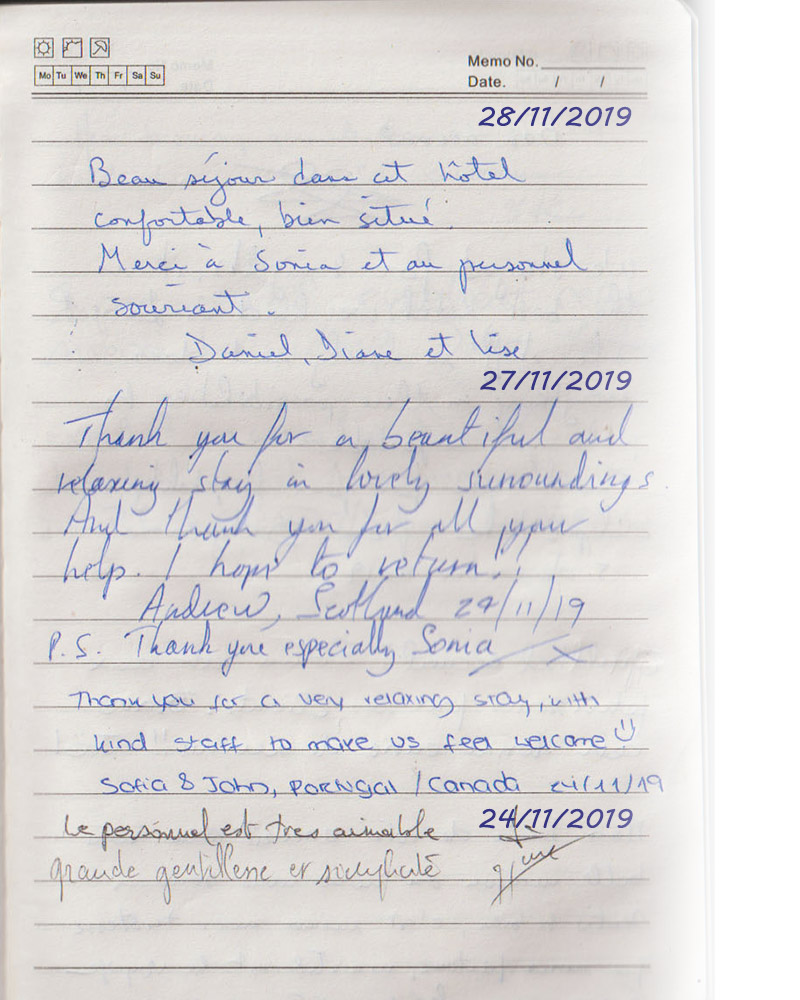 Mo Tu We Th Fr Sa Su
Memo No.
Date. / /
28/11/2019
Beau séjour dans cet hôtel
confortable, bien situé.
Merci à Sonia et au personnel
souriant.
Daniel, Diane et Lise
27/11/2019
Thank you for a beautiful and
relaxing stay in lovely surroundings.
And thank you for all your
help. I hope to return!!
Andrew, Scotland 27/11/19
P.S. Thank you especially Sonia X
Thank you for a very relaxing stay, with
kind staff to make us feel welcome
Sofia & John, Portugal / Canada 24/11/19
24/11/2019
Le personnel est tres aimable
grande gentillesse et simplicité